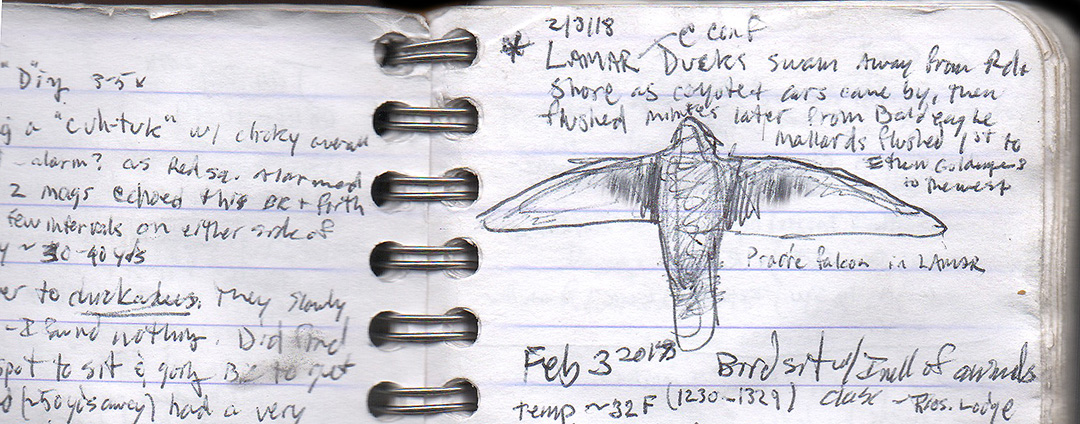 "D"iy 3-5x
g a "cuh-tuk" w/ choky
alarm? as Red sq. alarmed
2 mags echoed this BK + forth
few intervals on either side of
y ~ 30-40 yds
er to chickadees. They slowly
- I found nothing. Did find
spot to sit & to get
(~50 yds away) had a very
2/3/18
* LAMAR - @ conf
Ducks swam away from Rd +
shore as coyote + cars came by, then
flushed minutes later from Bald eagle
Mallards flushed 1st to
E then Goldeneyes
to the west
Prairie falcon in LAMAR
Feb 3 2018 Bird sit w/ of animals
temp ~32F (1230-1329) class ~ Lodge